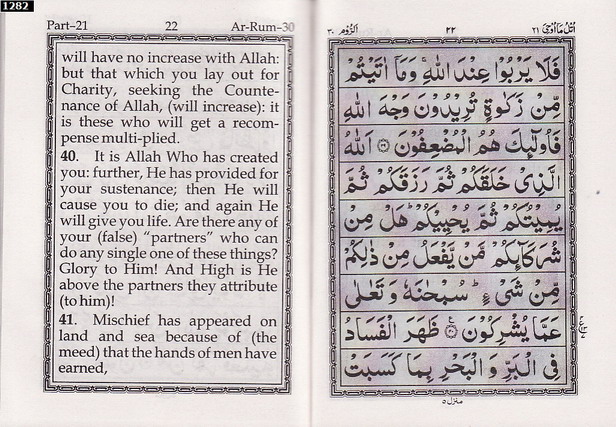 1282
Part-21 22 Ar-Rum-30
will have no increase with Allah:
but that which you lay out for
Charity, seeking the Counte-
nance of Allah, (will increase): it
is these who will get a recom-
pense multi-plied.
40. It is Allah Who has created
you: further, He has provided for
your sustenance; then He will
cause you to die; and again He
will give you life. Are there any of
your (false) “partners” who can
do any single one of these things?
Glory to Him! And High is He
above the partners they attribute
(to him)!
41. Mischief has appeared on
land and sea because of (the
meed) that the hands of men have
earned,
اُتْلُ مَآ اُوْحِیَ ٢١ ٢٢ اَلرُّوْم ٣٠
فَلَا يَرْبُوْا عِنْدَ اللّٰهِ ۚ وَمَآ اٰتَيْتُمْ
مِّنْ زَكٰوةٍ تُرِيْدُوْنَ وَجْهَ اللّٰهِ
فَاُولٰٓئِكَ هُمُ الْمُضْعِفُوْنَ ﴿٣٩﴾ اَللّٰهُ
الَّذِىْ خَلَقَكُمْ ثُمَّ رَزَقَكُمْ ثُمَّ
يُمِيْتُكُمْ ثُمَّ يُحْيِيْكُمْ ؕ هَلْ مِنْ
شُرَكَآئِكُمْ مَّنْ يَّفْعَلُ مِنْ ذٰلِكُمْ
مِّنْ شَىْءٍ ؕ سُبْحٰنَهٗ وَ تَعٰلٰى
عَمَّا يُشْرِكُوْنَ ﴿٤٠﴾ ظَهَرَ الْفَسَادُ
فِى الْبَرِّ وَ الْبَحْرِ بِمَا كَسَبَتْ
منزل ٥